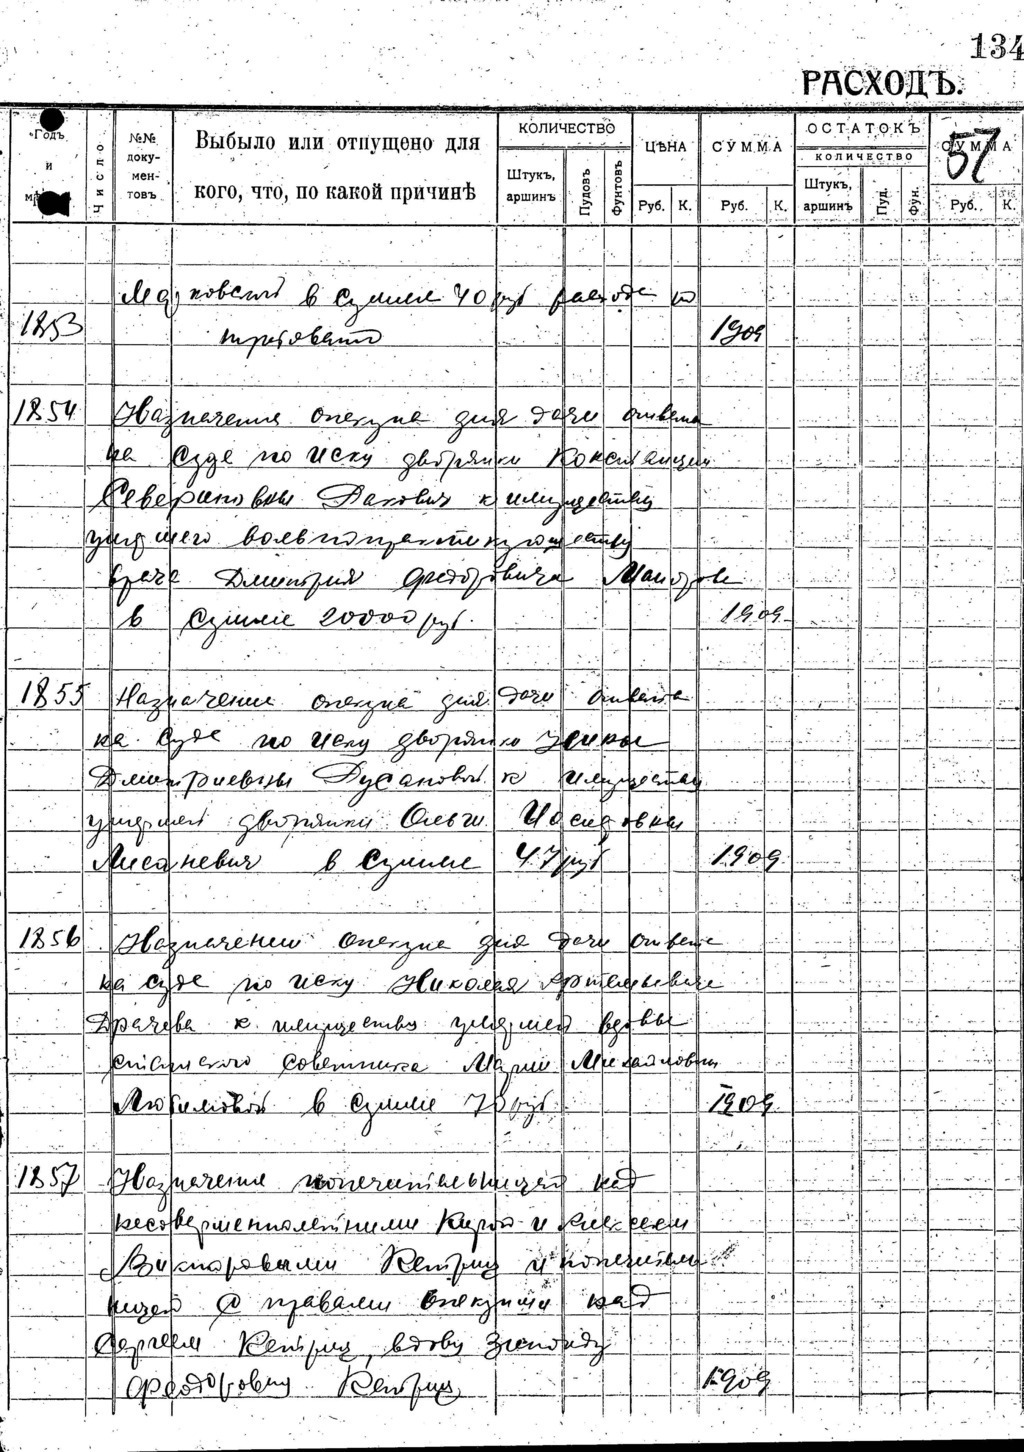 134
РАСХОДЪ.
Годъ и
Число
№№ доку-
мен-
товъ
Выбыло или отпущено для
кого, что, по какой причинѣ
КОЛИЧЕСТВО
Штукъ,
аршинъ
Пудовъ
Фунтовъ
ЦѢНА
Руб. К.
СУММА
Руб. К.
ОСТАТОКЪ
КОЛИЧЕСТВО
Штукъ,
аршинъ
Пуд.
Фун.
СУММА
57
Руб. К.
Марковской в сумме 40 руб
1853 1909
1854 Назначения опекуна для дачи ответа
на суде по иску дворянки Констанции
Севериновны Дакович к имуществу
умершего вольнопрактикующему
врача Дмитрия Федоровича Маиорова
в сумме 20000 руб. 1909
1855 Назначении опекуна для дачи ответа
на суде по иску дворянки
Дмитриевны Дусановой к имуществу
умершей дворянки Ольги Иосифовны
Лисаневич в сумме 47 руб 1909
1856 Назначении опекуна для дачи ответа
на суде по иску Николая Артемьевича
Драчева к имуществу умершей вдовы
статского советника Марии Михайловны
Любимовой в сумме 70 руб. 1909
1857 Назначения попечительницей над
несовершеннолетними Кирой и Алексеем
Викторовыми Кетриц и попечитель
ницей с правами опекунши над
Сергеем Кетриц, вдову Зинаиду
Федоровну Кетриц 1909